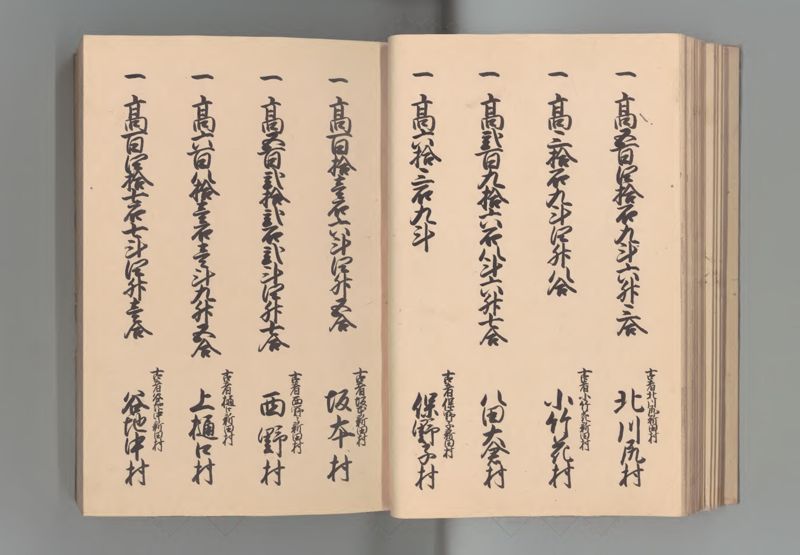 一 高五百四拾石九斗六升三合
古者北川尻新田村
北川尻村
一 高三拾石九斗四升八合
古者小竹花新田村
小竹花村
一 高弐百九拾六石八斗六升七合
八田大倉村
一 高六拾三石九斗
古者保野子新田村
保野子村
一 高百拾壱石六斗四升五合
古者坂本新田村
坂本村
一 高五百弐拾弐石弐斗四升七合
古者西野新田村
西野村
一 高六百八拾壱石壱斗九升五合
古者樋口新田村
上樋口村
一 高百四拾七石七斗四升壱合
古者谷地中新田村
谷地中村